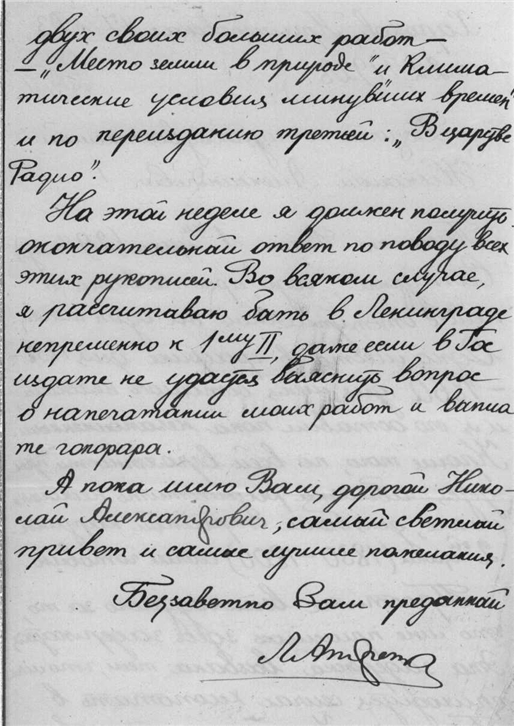 двух своих больших работ –
– „Место земли в природе" и Клима-
тические условия минувших времен"
и по переизданию третьей: „В царстве
Радио".
На этой неделе я должен получить
окончательный ответ по поводу всех
этих рукописей. Во всяком случае,
я рассчитываю быть в Ленинграде
непременно к 1му II, даже если в Гос
издате не удастся выяснить вопрос
о напечатании моих работ и выпла
те гонорара.
А пока шлю Вам, дорогой Нико-
лай Александрович, самый светлый
привет и самые лучшие пожелания.
Беззаветно Вам преданный